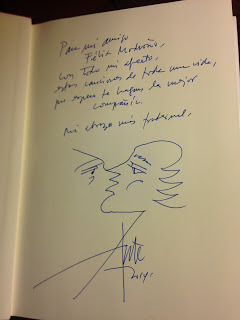 Para mi amigo
Félix Madroño,
con todo mi afecto,
estas canciones de toda una vida,
que espero te hagan la mejor
compañía.
Mi abrazo más fraternal,
Aute
2014.